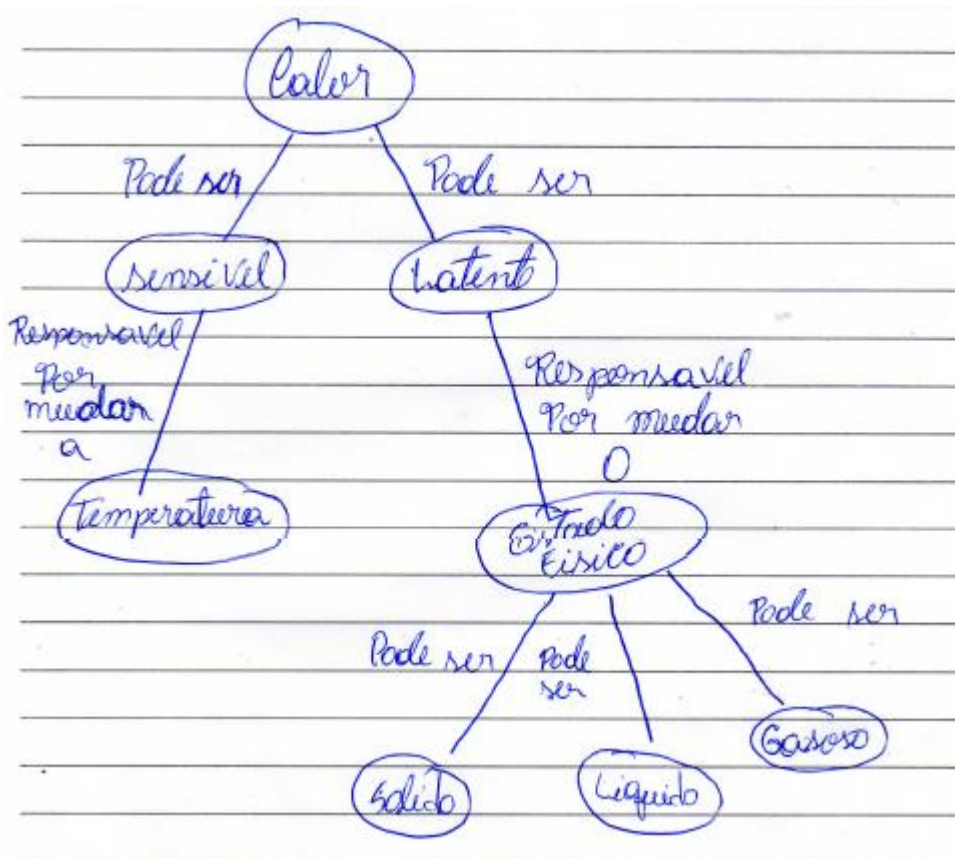 Calor
Pode ser
Pode ser
sensivel
Latente
Responsavel
Por
mudar
a
Responsavel
Por mudar
O
Temperatura
Estado
Fisico
Pode ser
Pode
ser
Pode ser
Solido
Liquido
Gasoso